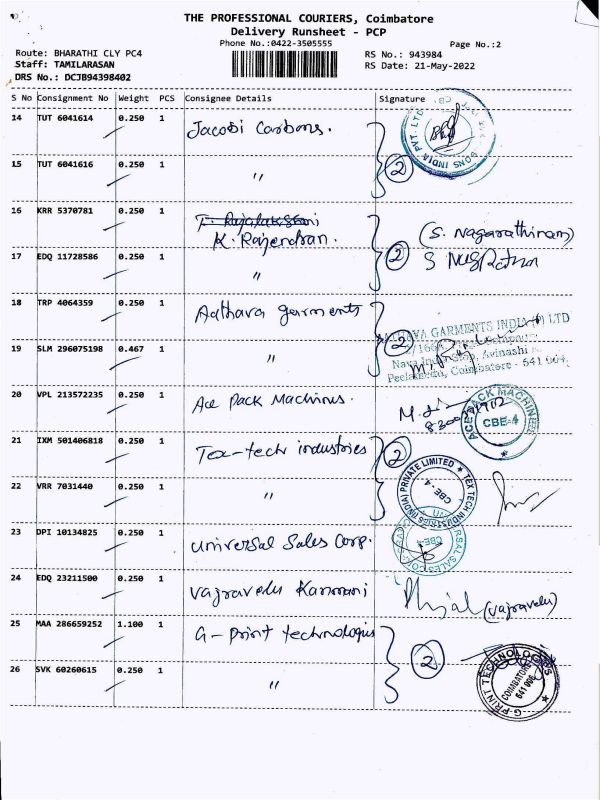 THE PROFESSIONAL COURIERS, Coimbatore
Delivery Runsheet - PCP
Phone No.:0422-3505555
Page No.:2
Route: BHARATHI CLY PC4
RS No.: 943984
Staff: TAMILARASAN
RS Date: 21-May-2022
DRS No.: DCJB94398402
S No Consignment No Weight PCS Consignee Details Signature
14 TUT 6041614 0.250 1 Jacobi Carbons.
15 TUT 6041616 0.250 1 " 2
16 KRR 5370781 0.250 1 T. Rajalakshmi
K. Rajendran. (S. Nagarathinam)
17 EDQ 11728586 0.250 1 " 2
18 TRP 4064359 0.250 1 Aathava garments
AATHAVA GARMENTS INDIA (P) LTD
19 SLM 296075198 0.467 1 " 2
Avinashi
Coimbatore - 641 004.
20 VPL 213572235 0.250 1 Ace Pack Machines.
ACE PACK MACHINES
CBE-4
21 IXM 501406818 0.250 1 Tex-tech industries
TEX TECH INDUSTRIES (INDIA) PRIVATE LIMITED
CBE-4
22 VRR 7031440 0.250 1 " 2
23 DPI 10134825 0.250 1 Universal Sales Corp.
CBE-4
24 EDQ 23211500 0.250 1 Vajravelu Kanmani (Vajravelu)
25 MAA 286659252 1.100 1 G-Print technologies
26 SVK 60260615 0.250 1 " 2
G-PRINT TECHNOLOGIES
COIMBATORE
641 006